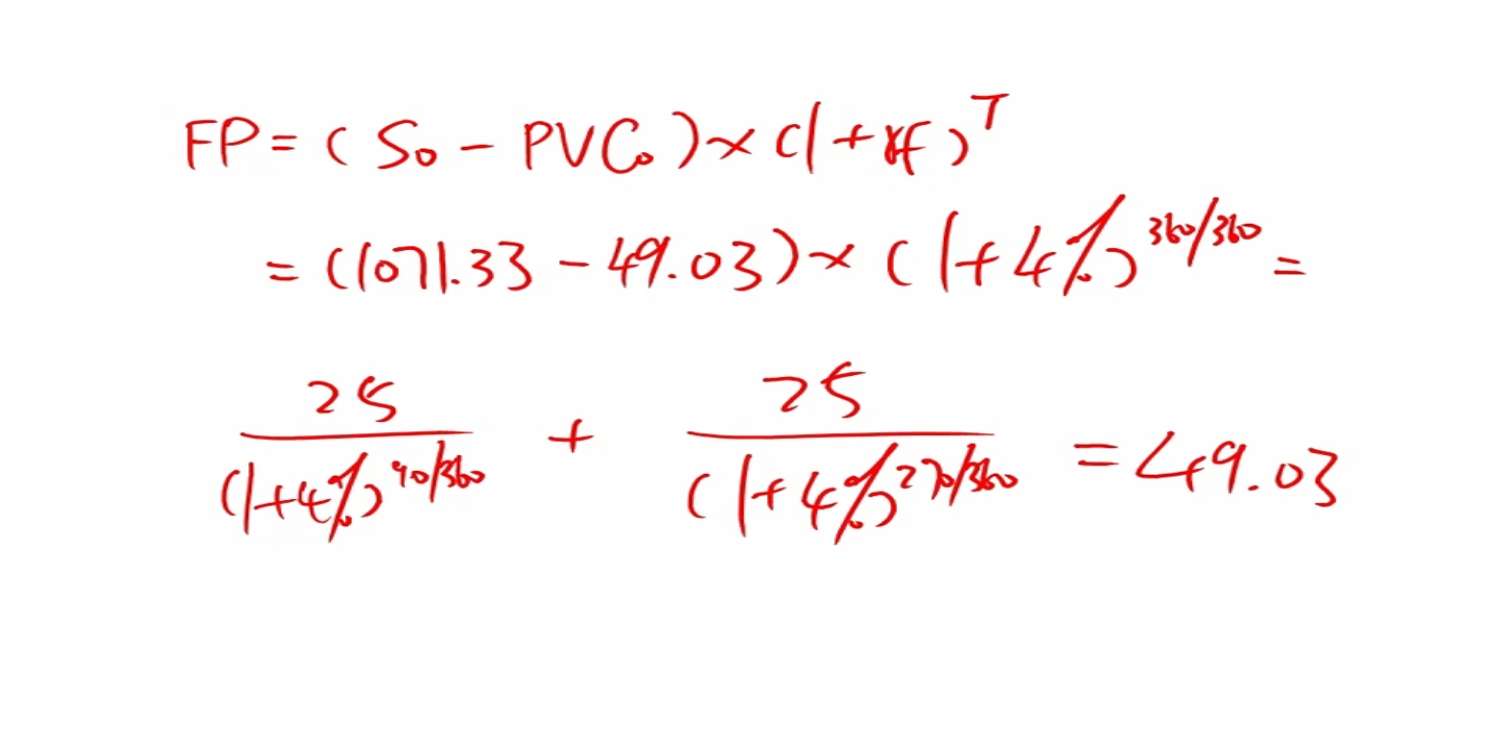 FP = (S₀ - PVC₀) × (1 + rf)^T
= (1071.33 - 49.03) × (1 + 4%)^360/360 =
25/(1+4%)^90/360 + 25/(1+4%)^270/360 = 49.03